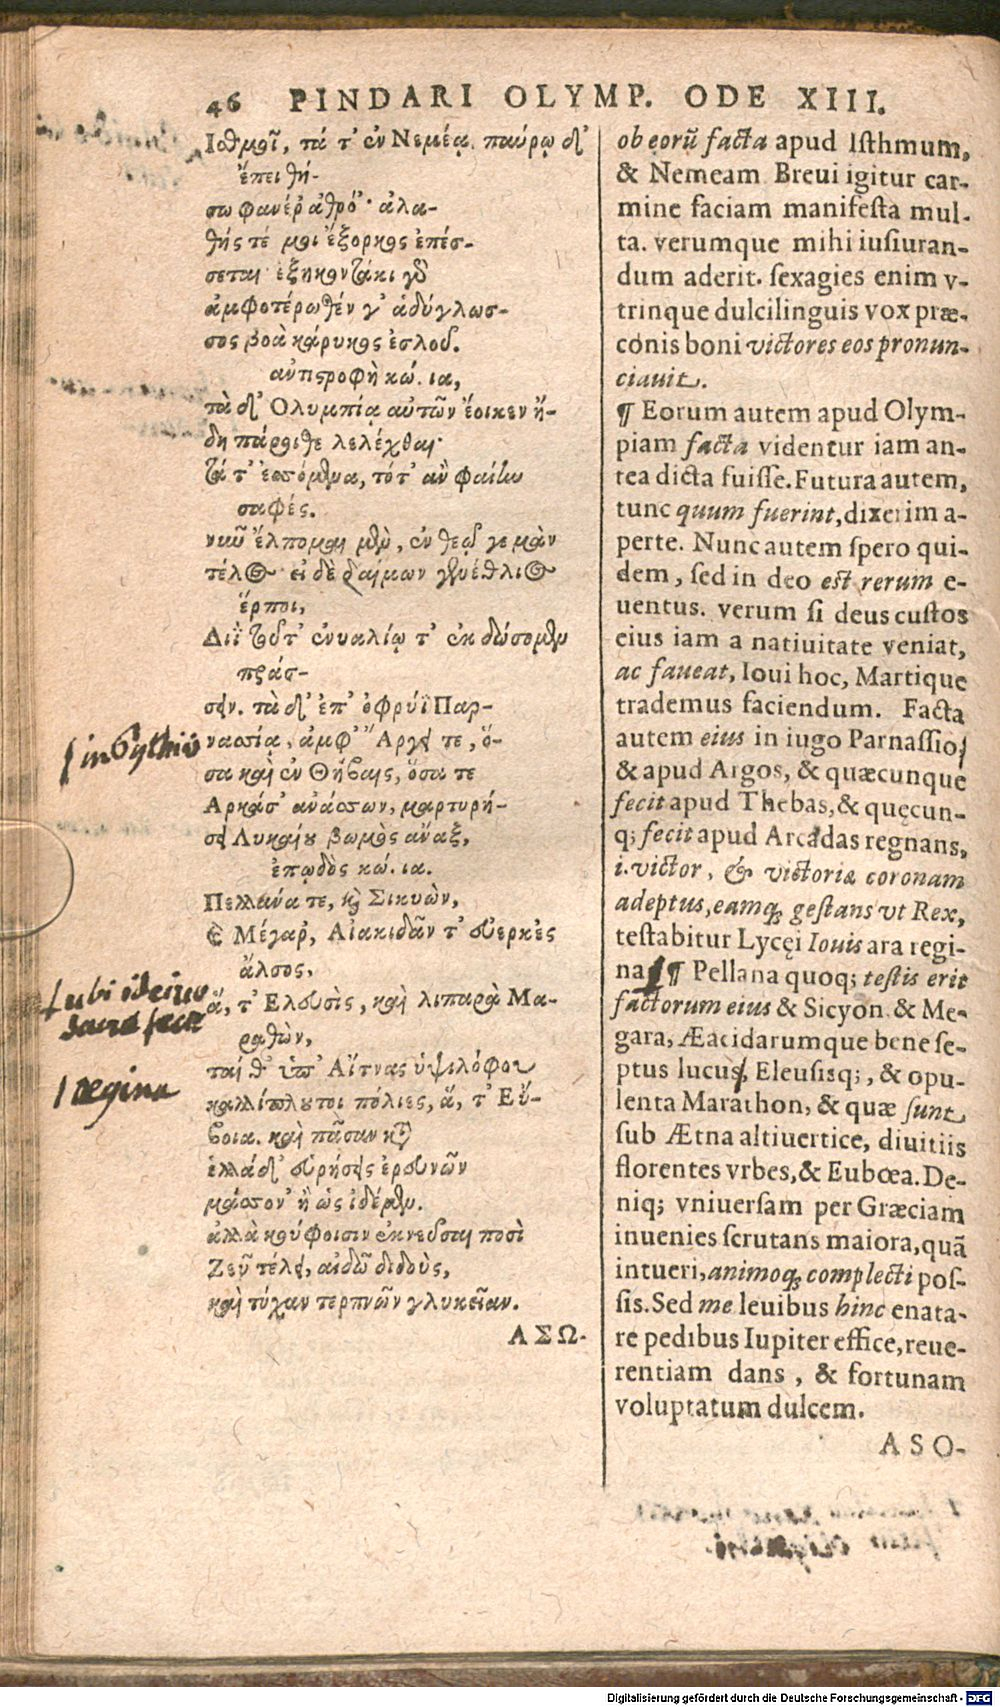 46 PINDARI OLYMP. ODE XIII.
Ἰσθμοῖ, τά τ' ἐν Νεμέᾳ. παύρῳ δ'
ἔπει θή-
σω φανέρ' ἀθρό'· ἀλα-
θής τέ μοι ἔξορκος ἐπέσ-
σεται ἑξηκοντάκι γὸ
ἀμφοτέρωθέν γ' ἁδύγλωσ-
σος βοὰ κάρυκος ἐσλοῦ.
ἀντιστροφὴ κώ. ια,
τὰ δ' Ὀλυμπίᾳ αὐτῶν ἔοικεν ἤ-
δη πάροιθε λελέχθαι·
τά τ' ἐσσόμενα, τότ' ἂν φαίην
σαφές.
νῦν ἔλπομαι μὲν, ἐν θεῷ γε μὰν
τέλος· εἰ δὲ δαίμων γενέθλιος
ἕρποι,
Διῒ τοῦτ' ἐνυαλίῳ τ' ἐκ δώσομεν
πράσ-
σειν. τὰ δ' ἐπ' ὀφρύϊ Παρ-
νασίᾳ, ἀμφ' Ἄργει τε, ὅ-
σα καὶ ἐν Θήβαις, ὅσα τε
Ἀρκάσ' ἀνάσσων, μαρτυρή-
σει Λυκαίου βωμὸς ἄναξ,
ἐπῳδὸς κώ. ια.
Πελλάνα τε, καὶ Σικυὼν,
καὶ Μέγαρ', Αἰακιδᾶν τ' εὐερκὲς
ἄλσος,
ἅ, τ' Ελευσὶς, καὶ λιπαρὰ Μα-
ραθὼν,
ταί θ' ὑπ' Αἴτνας ὑψιλόφου
καλλίπλουτοι πόλιες, ἅ, τ' Εὔ-
βοια. καὶ πᾶσαν κατὰ
ἑλλάδ' εὑρήσεις ἐρευνῶν
μάσσον' ἢ ὡς ἰδέμεν.
ἀλλὰ κούφοισιν ἐκνεῦσαι ποσὶ
Ζεῦ τέλει, αἰδῶ διδοὺς,
καὶ τύχαν τερπνῶν γλυκεῖαν.
ΑΣΩ-
ob eorũ facta apud Isthmum,
& Nemeam Breui igitur car-
mine faciam manifesta mul-
ta. verumque mihi iusiuran-
dum aderit. sexagies enim v-
trinque dulcilinguis vox præ-
conis boni victores eos pronun-
ciauit.
¶ Eorum autem apud Olym-
piam facta videntur iam an-
tea dicta fuisse. Futura autem,
tunc quum fuerint, dixerim a-
perte. Nunc autem spero qui-
dem, sed in deo est rerum e-
uentus. verum si deus custos
eius iam a natiuitate veniat,
ac faueat, Ioui hoc, Martique
trademus faciendum. Facta
autem eius in iugo Parnassio,
& apud Argos, & quæcunque
fecit apud Thebas, & quęcun-
q; fecit apud Arcadas regnans,
i. victor, & victoriæ coronam
adeptus, eamq; gestans vt Rex,
testabitur Lycęi Iouis ara regi-
na. ¶ Pellana quoq; testis erit
factorum eius & Sicyon & Me-
gara, Æacidarumque bene se-
ptus lucus, Eleusisq;, & opu-
lenta Marathon, & quæ sunt
sub Ætna altiuertice, diuitiis
florentes vrbes, & Eubœa. De-
niq; vniuersam per Græciam
inuenies scrutans maiora, quã
intueri, animoq; complecti pos-
sis. Sed me leuibus hinc enata-
re pedibus Iupiter effice, reue-
rentiam dans, & fortunam
voluptatum dulcem.
ASO-
in Pythiis
ubi
ægina
Digitalisierung gefördert durch die Deutsche Forschungsgemeinschaft - DFG